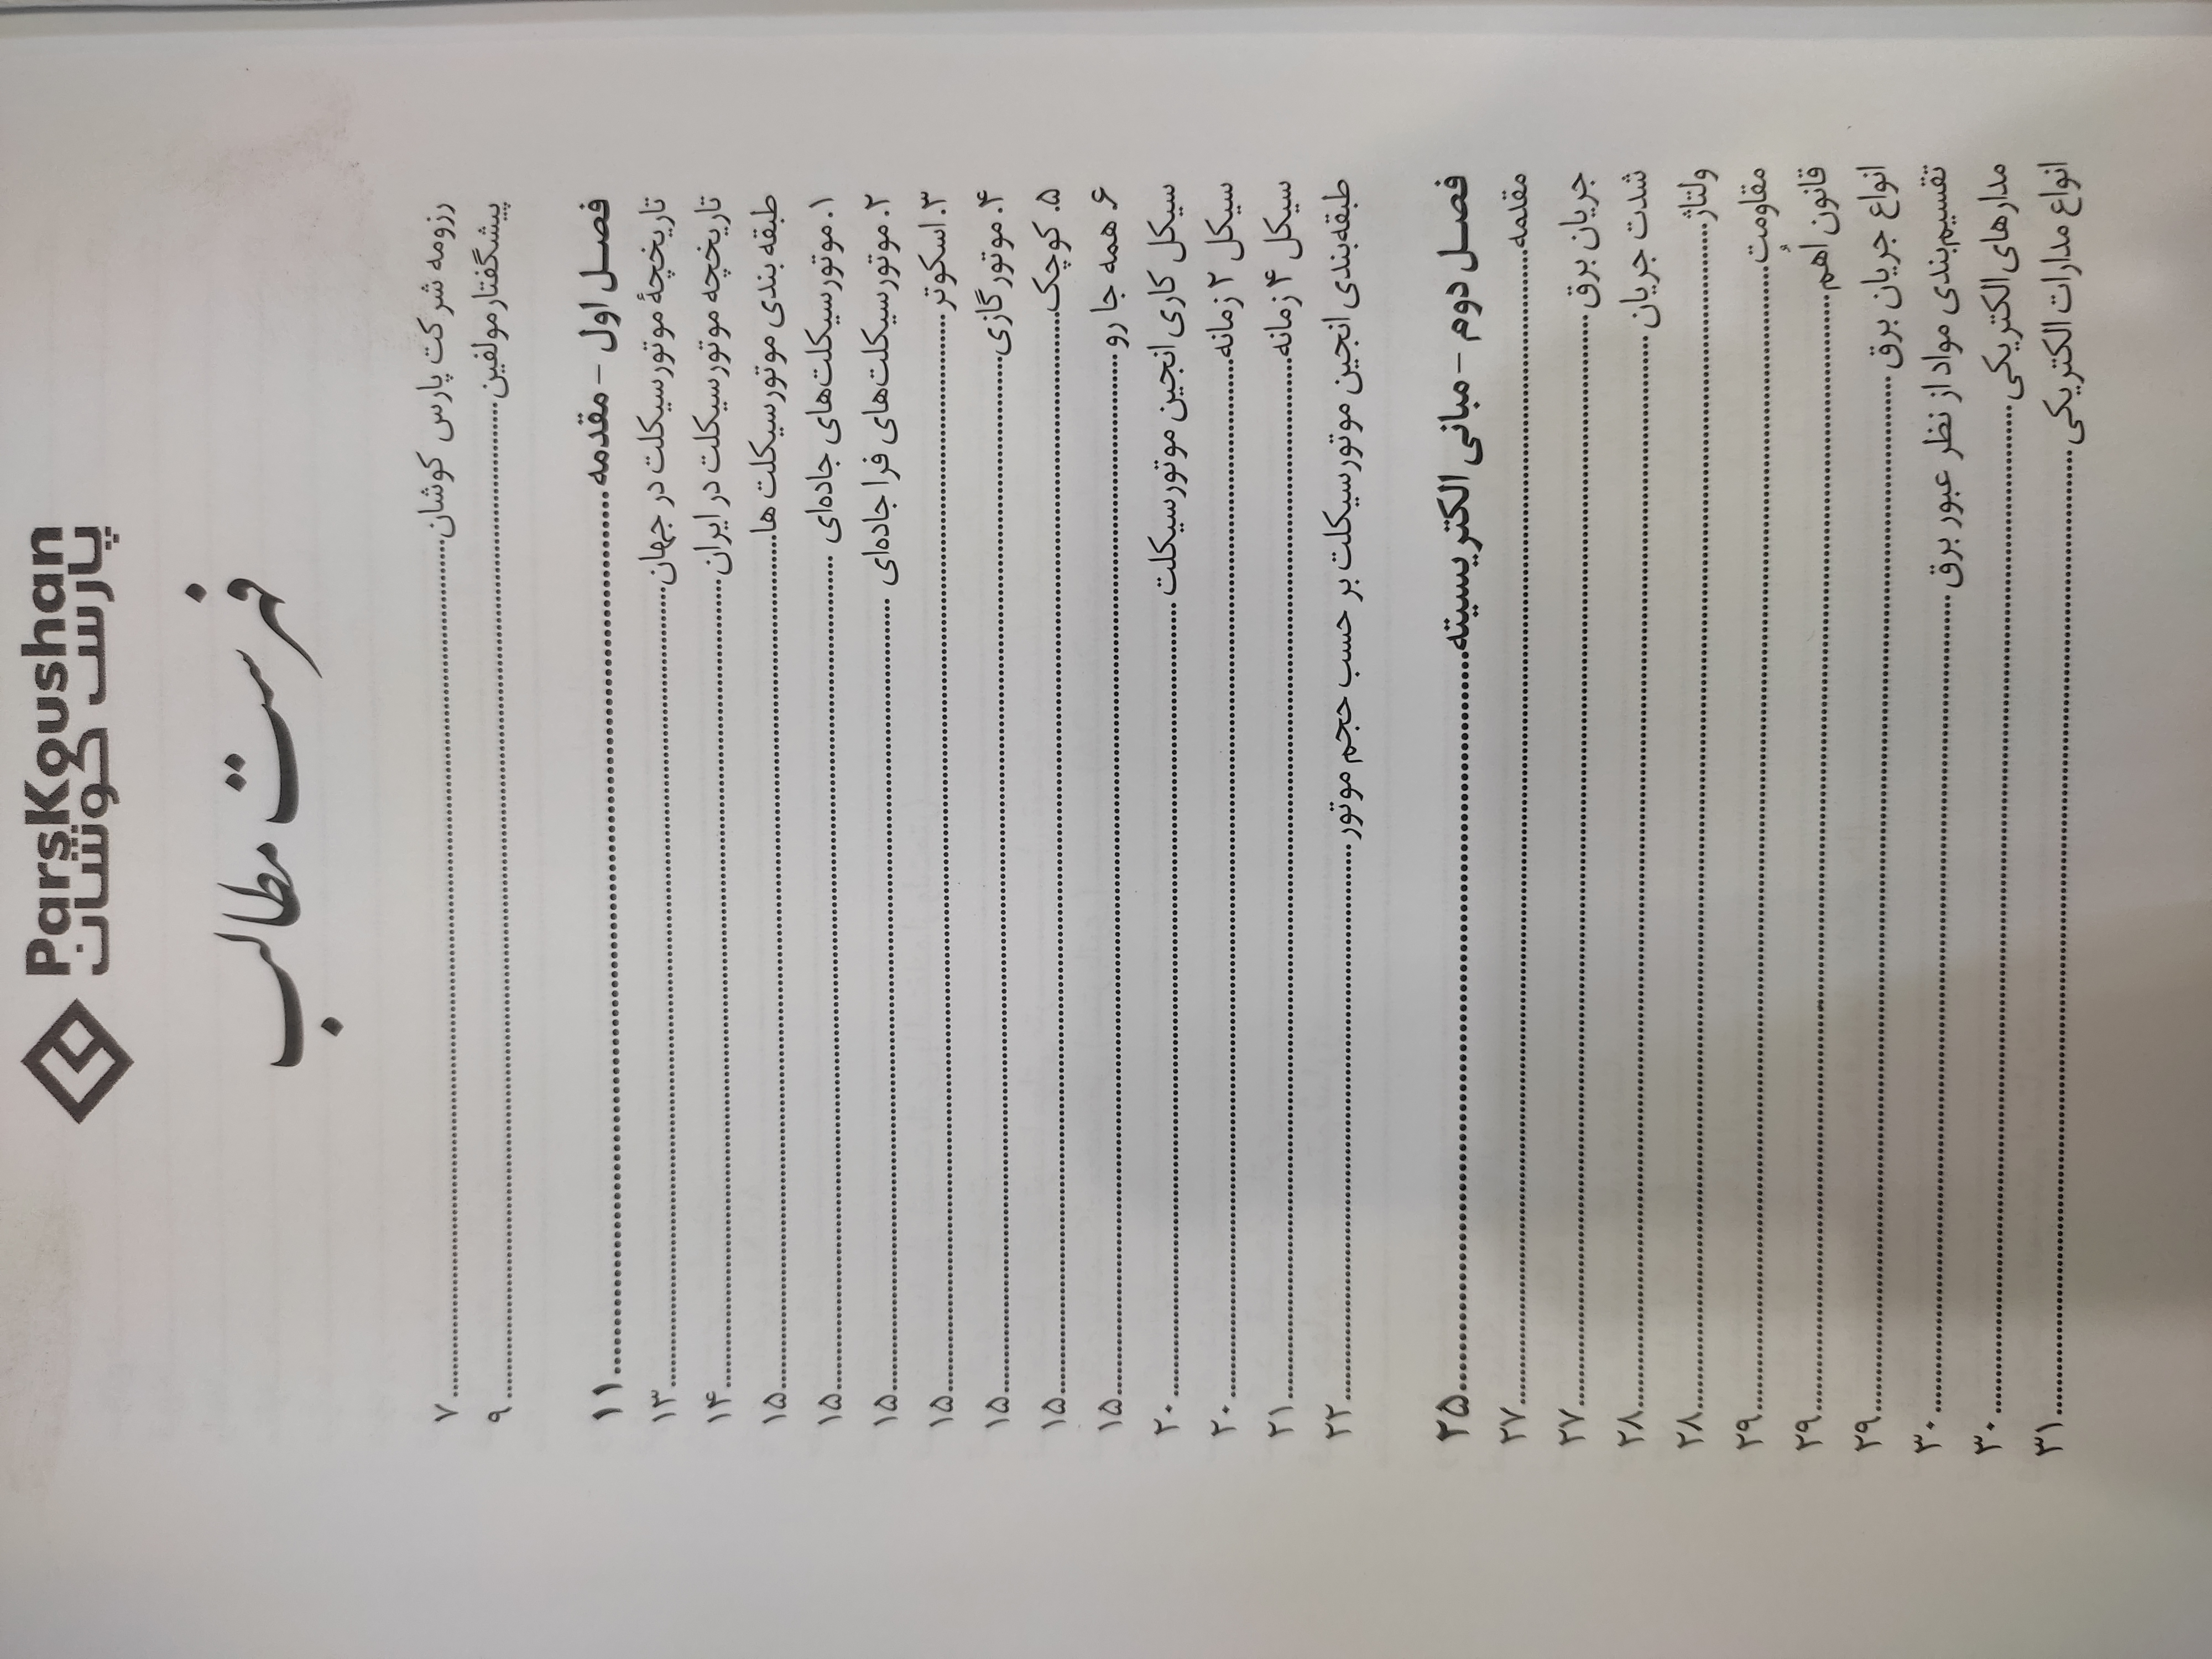 ParsKoushan
پارس کوشان
فهرست مطالب
رزومه شرکت پارس کوشان ........ ۷
پیشگفتار مولفین ........ ۹
فصل اول – مقدمه ........ ۱۱
تاریخچهٔ موتورسیکلت در جهان ........ ۱۳
تاریخچه موتورسیکلت در ایران ........ ۱۴
طبقه بندی موتورسیکلت ها ........ ۱۵
۱. موتورسیکلت‌های جاده‌ای ........ ۱۵
۲. موتورسیکلت‌های فرا جاده‌ای ........ ۱۵
۳. اسکوتر ........ ۱۵
۴. موتور گازی ........ ۱۵
۵. کوچک ........ ۱۵
۶. همه جا رو ........ ۱۵
سیکل کاری انجین موتورسیکلت ........ ۲۰
سیکل ۲ زمانه ........ ۲۰
سیکل ۴ زمانه ........ ۲۱
طبقه‌بندی انجین موتورسیکلت بر حسب حجم موتور ........ ۲۲
فصل دوم – مبانی الکتریسیته ........ ۲۵
مقدمه ........ ۲۷
جریان برق ........ ۲۷
شدت جریان ........ ۲۸
ولتاژ ........ ۲۸
مقاومت ........ ۲۹
قانون اُهم ........ ۲۹
انواع جریان برق ........ ۲۹
تقسیم‌بندی مواد از نظر عبور برق ........ ۳۰
مدارهای الکتریکی ........ ۳۰
انواع مدارات الکتریکی ........ ۳۱